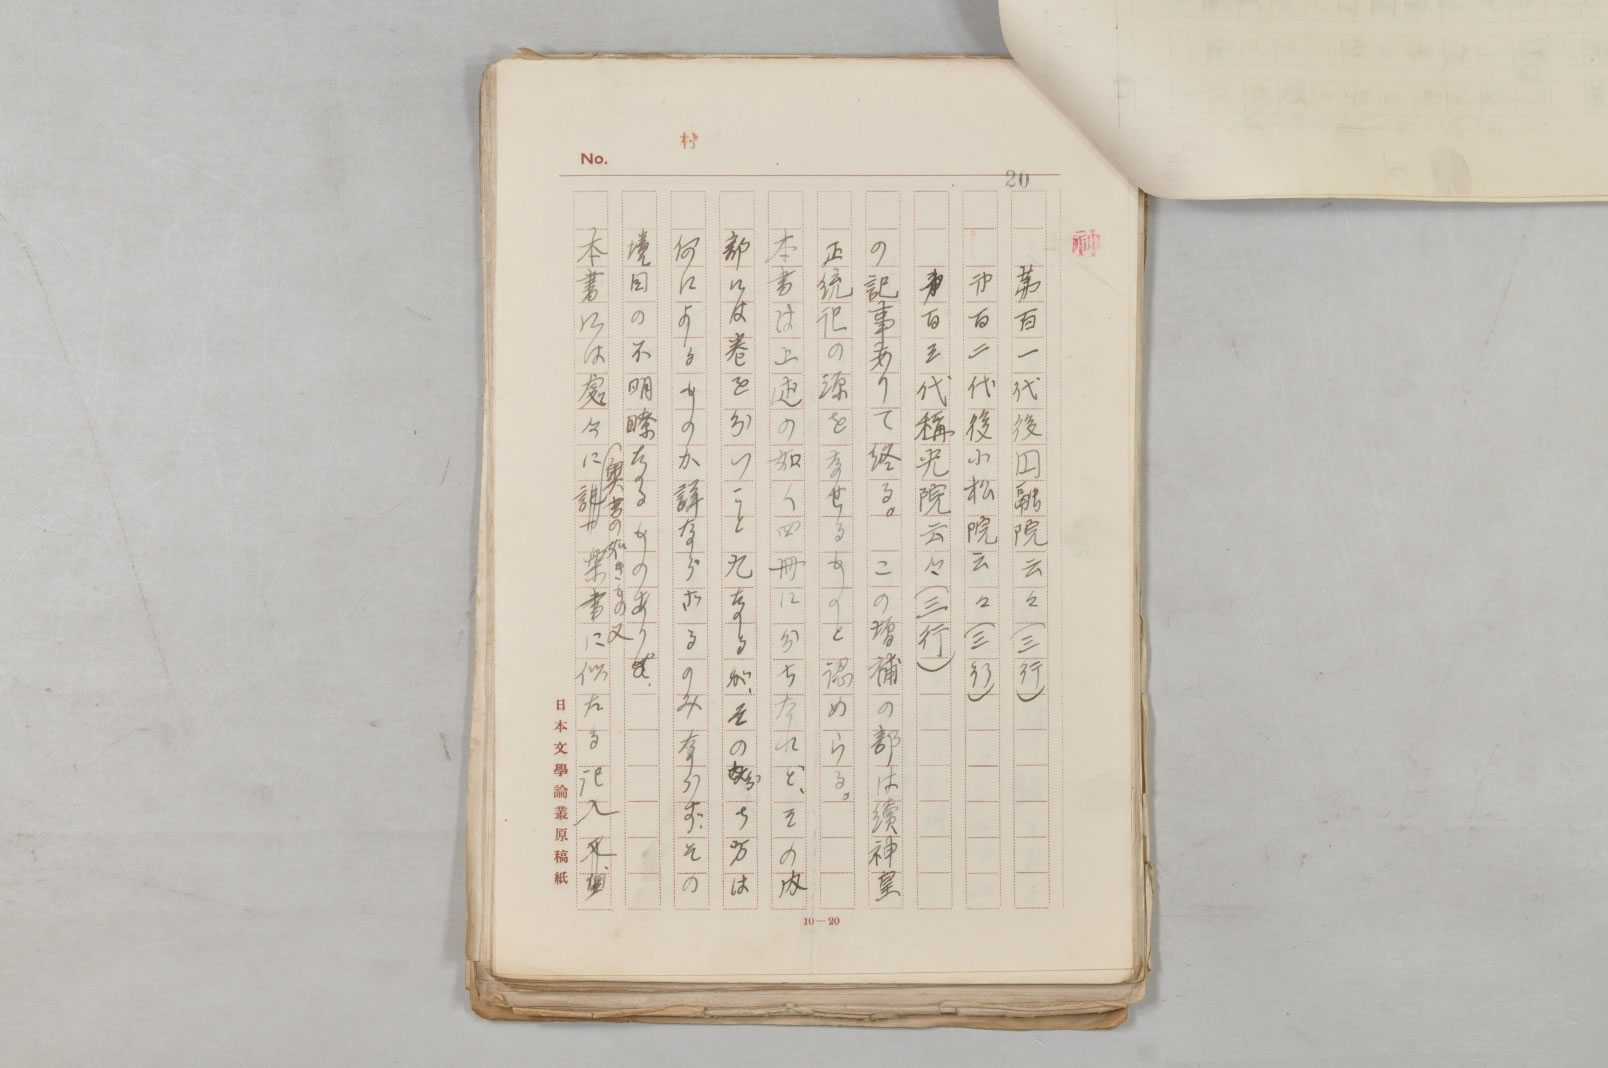 No.
村
20
神
第百一代後円融院云々(三行)
才百二代後小松院云々(三行)
才百三代稱光院云々(三行)
の記事ありて終る。この増補の部は續神皇
正統記の源をなせるものと認めらる。
本書は上述の如く四冊に分ちたれど、その内
部には巻を分つこと九なるが、その分ち方は
何によるものか詳ならざるのみならず、その
境目の不明瞭なるものあり。
本書には處々に奥書の如きもの又樂書に似たる記入
日本文學論叢原稿紙
10—20